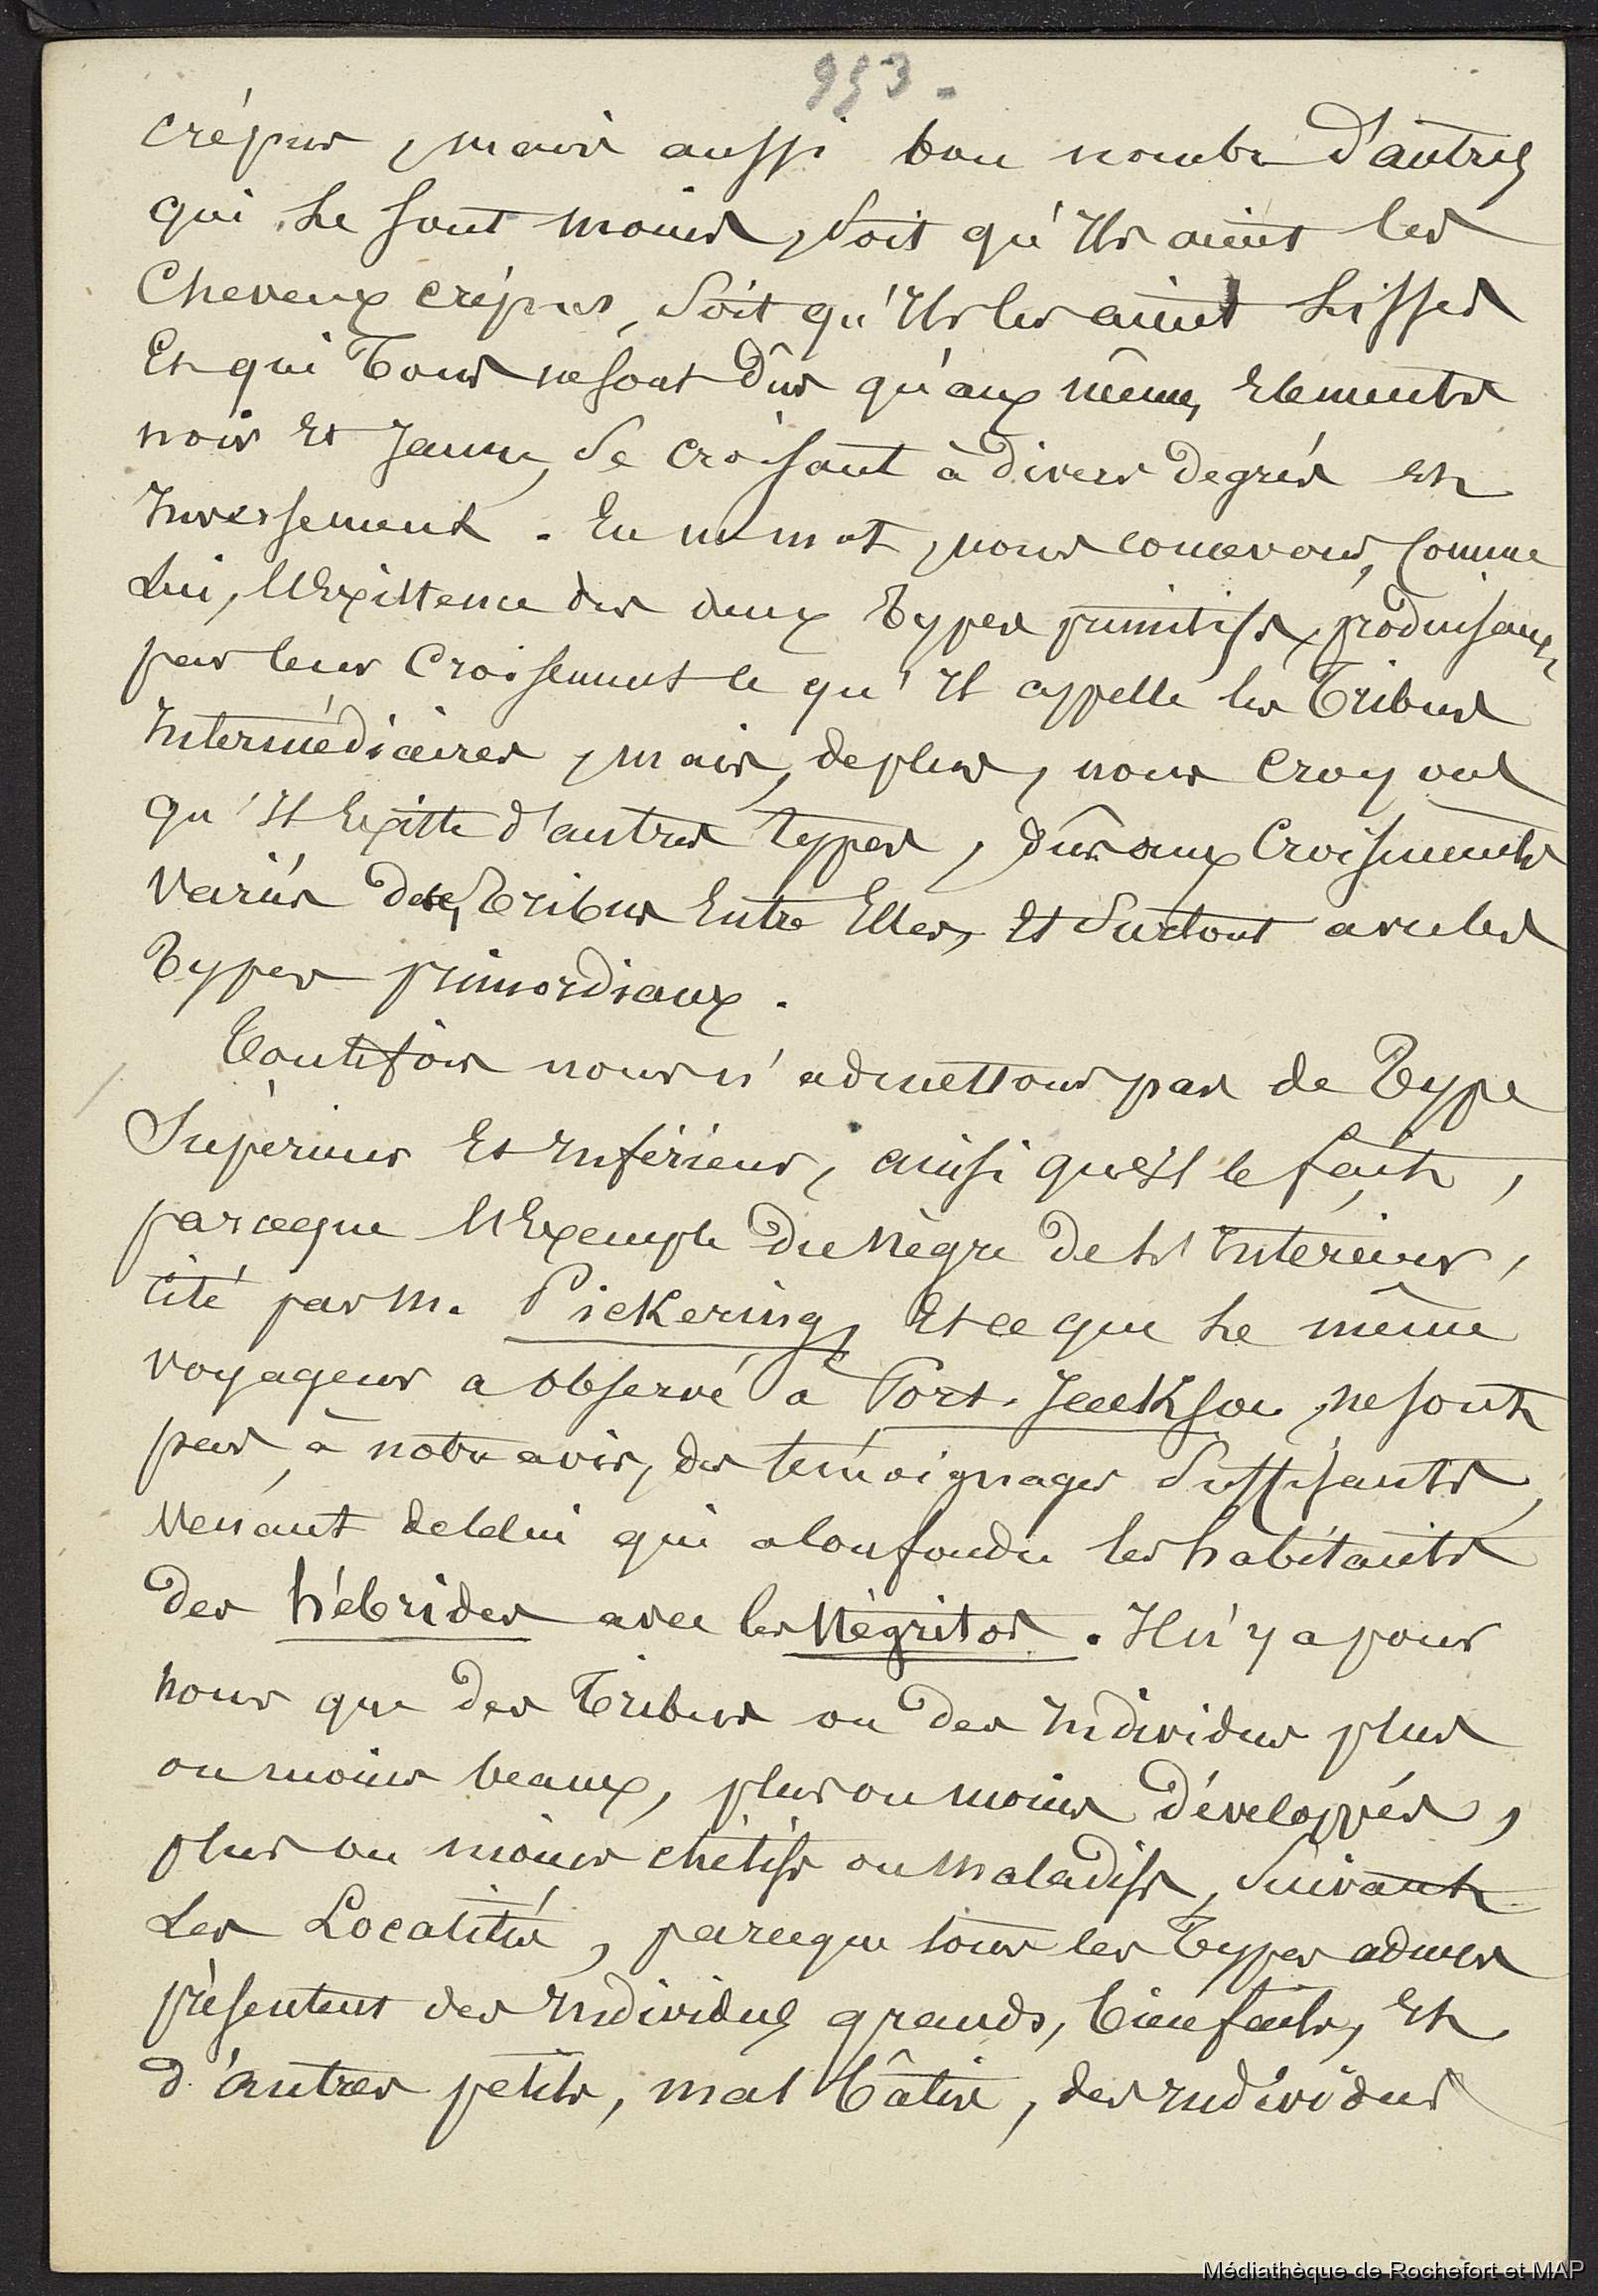 953.
crépus, mais aussi bon nombre d'autres
qui le sont moins, soit qu'Ils aient les
Cheveux crépus, soit qu'Ils les aient lisses
Et qui Tous ne sont dûs qu'aux mêmes Elements
noir Et Jaune, se croisant à divers degrés et
Inversement. En un mot, nous concevons, Comme
Lui, l'Existence des deux Types primitifs, produisant
par leur Croisement ce qu'Il appelle les Tribus
Intermédiaires, mais, de plus, nous Croyons
qu'Il Existe d'autres Types, dûs aux Croisements
Variés des Tribus Entre Elles, Et surtout avec les
Types primordiaux.
Toutefois nous n'admettons pas de Type
Supérieur Et Inférieur, ainsi qu'Il le fait,
parceque l'Exemple du Nègre de l'Interieur,
Cité par M. Pickering, Et ce que le même
voyageur a observé à Port-Jackson, ne sont
pas, à notre avis, des témoignages suffisants,
Venant de Celui qui a Confondu les habitants
des hébrides avec les Négritos. Il n'y a pour
nous que des Tribus ou des Individus plus
ou moins beaux, plus ou moins développés,
plus ou moins chétifs ou maladifs, suivant
Les Localités, parceque tous les Types admis
présentent des Individus grands, bien faits, Et
d'autres petits, mal bâtis, des Individus
Médiathèque de Rochefort et MAP